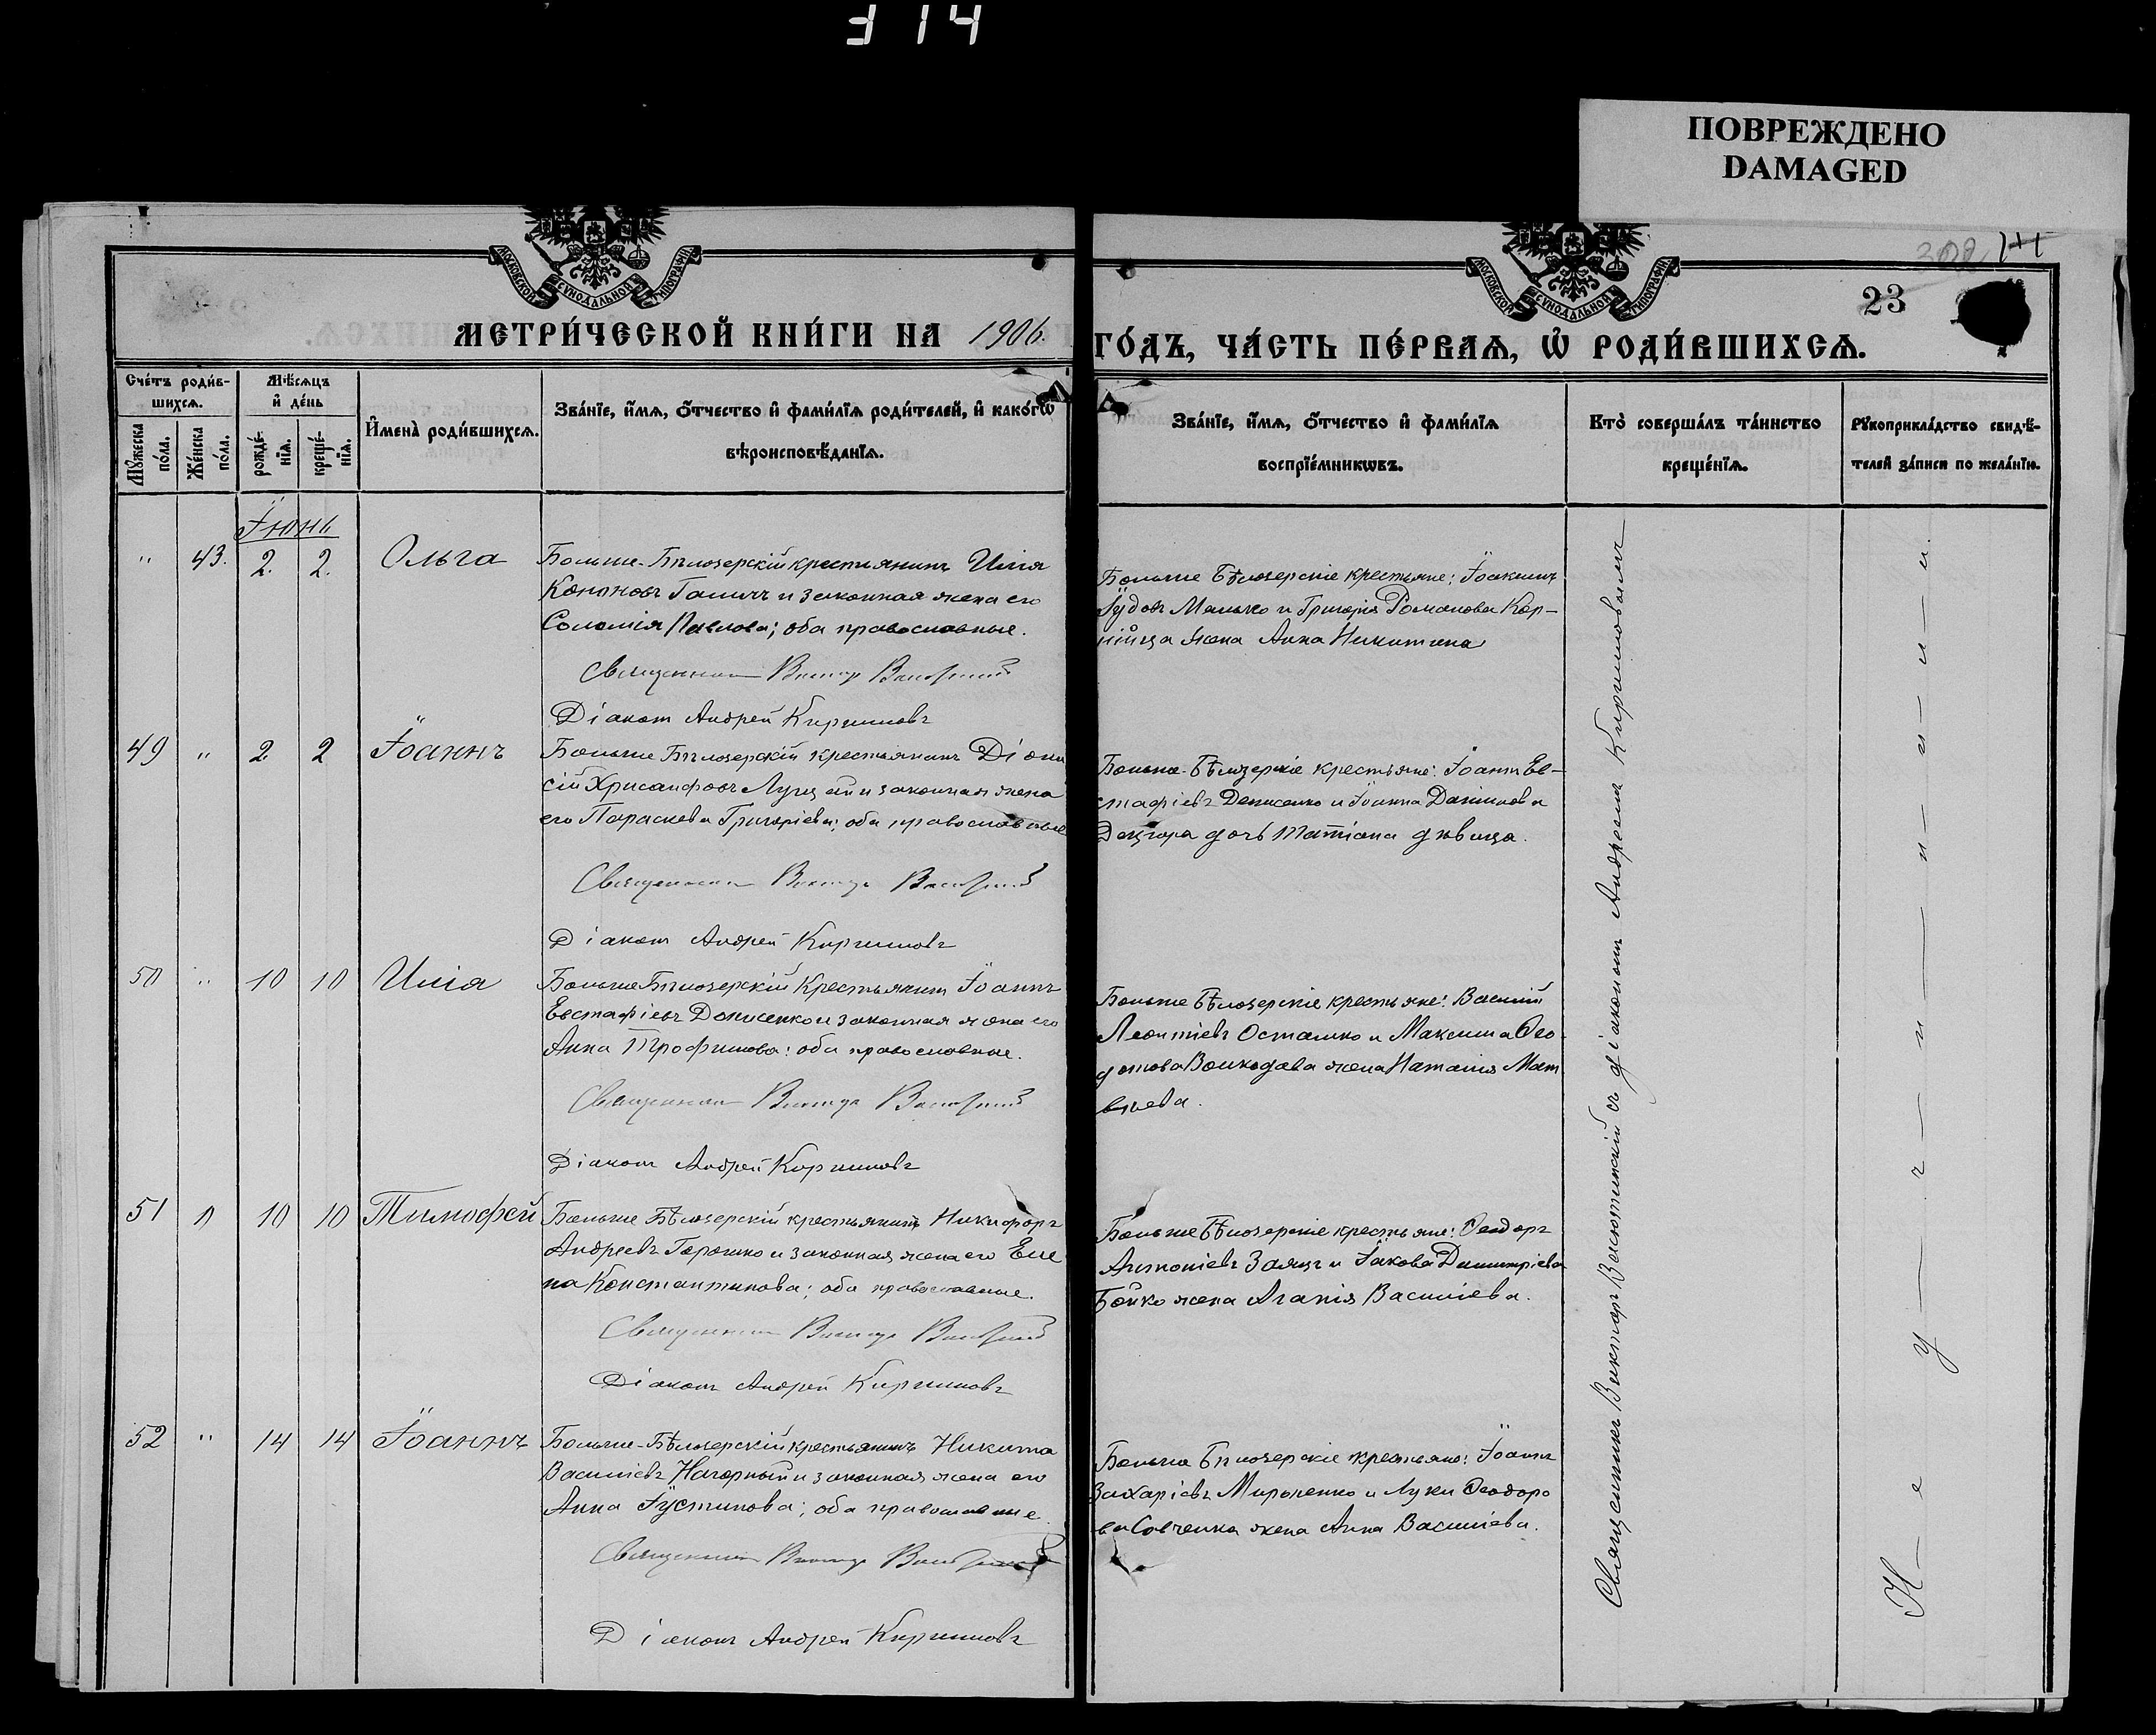 314
ПОВРЕЖДЕНО
DAMAGED
МОСКОВСКОЙ СѴНОДАЛЬНОЙ ТИПОГРАФІИ
МОСКОВСКОЙ СѴНОДАЛЬНОЙ ТИПОГРАФІИ
23
МЕТРИ́ЧЕСКОЙ КНИ́ГИ НА 1906.
ГО́ДЪ, ЧА́СТЬ ПЕ́РВАѦ, Ѡ҆ РОДИ́ВШИХСѦ.
Сче́тъ роди́в-
шихсѧ.
Мꙋ́жеска по́ла.
Же́нска по́ла.
Мѣ́сѧцъ
и҆ де́нь
рожде́-
нїѧ.
креще́-
нїѧ.
И҆мена̀ роди́вшихсѧ.
Зва́нїе, и҆́мѧ, ѻ҆́тчество и҆ фами́лїѧ роди́телей, и҆ како́гѡ
вѣроисповѣ́данїѧ.
Зва́нїе, и҆́мѧ, ѻ҆́тчество и҆ фами́лїѧ
воспрїе́мникѡвъ.
Кто̀ соверша́лъ та́инство
креще́нїѧ.
Рꙋкоприкла́дство свидѣ́-
телей за́писи по жела́нїю.
Іюнь
" 43. 2. 2. Ольга
Больше-Бѣлозерскій крестьянинъ Илія
Кононовъ Галичъ и законная жена его
Соломія Павлова; оба православные.
Священникъ Викторъ
Діаконъ Андрей Кирилловъ
Больше Бѣлозерскіе крестьяне: Іоакимъ
Іудовъ Малько и Григорія Романова Кор-
нійца жена Анна Никитина
49 " 2 2 Іоаннъ
Больше Бѣлозерскій крестьянинъ Діони
сій Хрисанфовъ Луцай и законная жена
его Параскева Григоріева; оба православные
Священникъ Викторъ
Діаконъ Андрей Кирилловъ
Больше-Бѣлозерскіе крестьяне: Іоаннъ Ев-
стафіевъ Денисенко и Іоанна Даніилова
дочь Татіана дѣвица.
50 " 10 10 Илія
Больше Бѣлозерскій крестьянинъ Іоаннъ
Евстафіевъ Денисенко и законная жена его
Анна Трофимова: оба православные.
Священникъ Викторъ
Діаконъ Андрей Кирилловъ
Больше Бѣлозерскіе крестьяне: Василій
Леонтіевъ Осташко и Максима Ѳео
дотова Волкодава жена Наталія Мат
вѣева.
51 " 10 10 Тимофей
Больше Бѣлозерскій крестьянинъ Никифоръ
Андреевъ Горошко и законная жена его Еле
на Константинова; оба православные.
Священникъ Викторъ
Діаконъ Андрей Кирилловъ
Больше Бѣлозерскіе крестьяне: Ѳеодоръ
Антоніевъ Заяцъ и Іакова Димитріева
Бойко жена Агапія Василіева.
52 " 14 14 Іоаннъ
Больше-Бѣлозерскій крестьянинъ Никита
Василіевъ Нагорный и законная жена его
Анна Іустинова; оба православные.
Священникъ Викторъ
Діаконъ Андрей Кирилловъ
Больше Бѣлозерскіе крестьяне: Іоаннъ
Захаріевъ Мироненко и Луки Ѳеодоро
ва Савченка жена Анна Василіева.
Священникъ Викторъ съ діакономъ Андреемъ Кирилловымъ
Н-е у-ч-и-н-и-л-и.